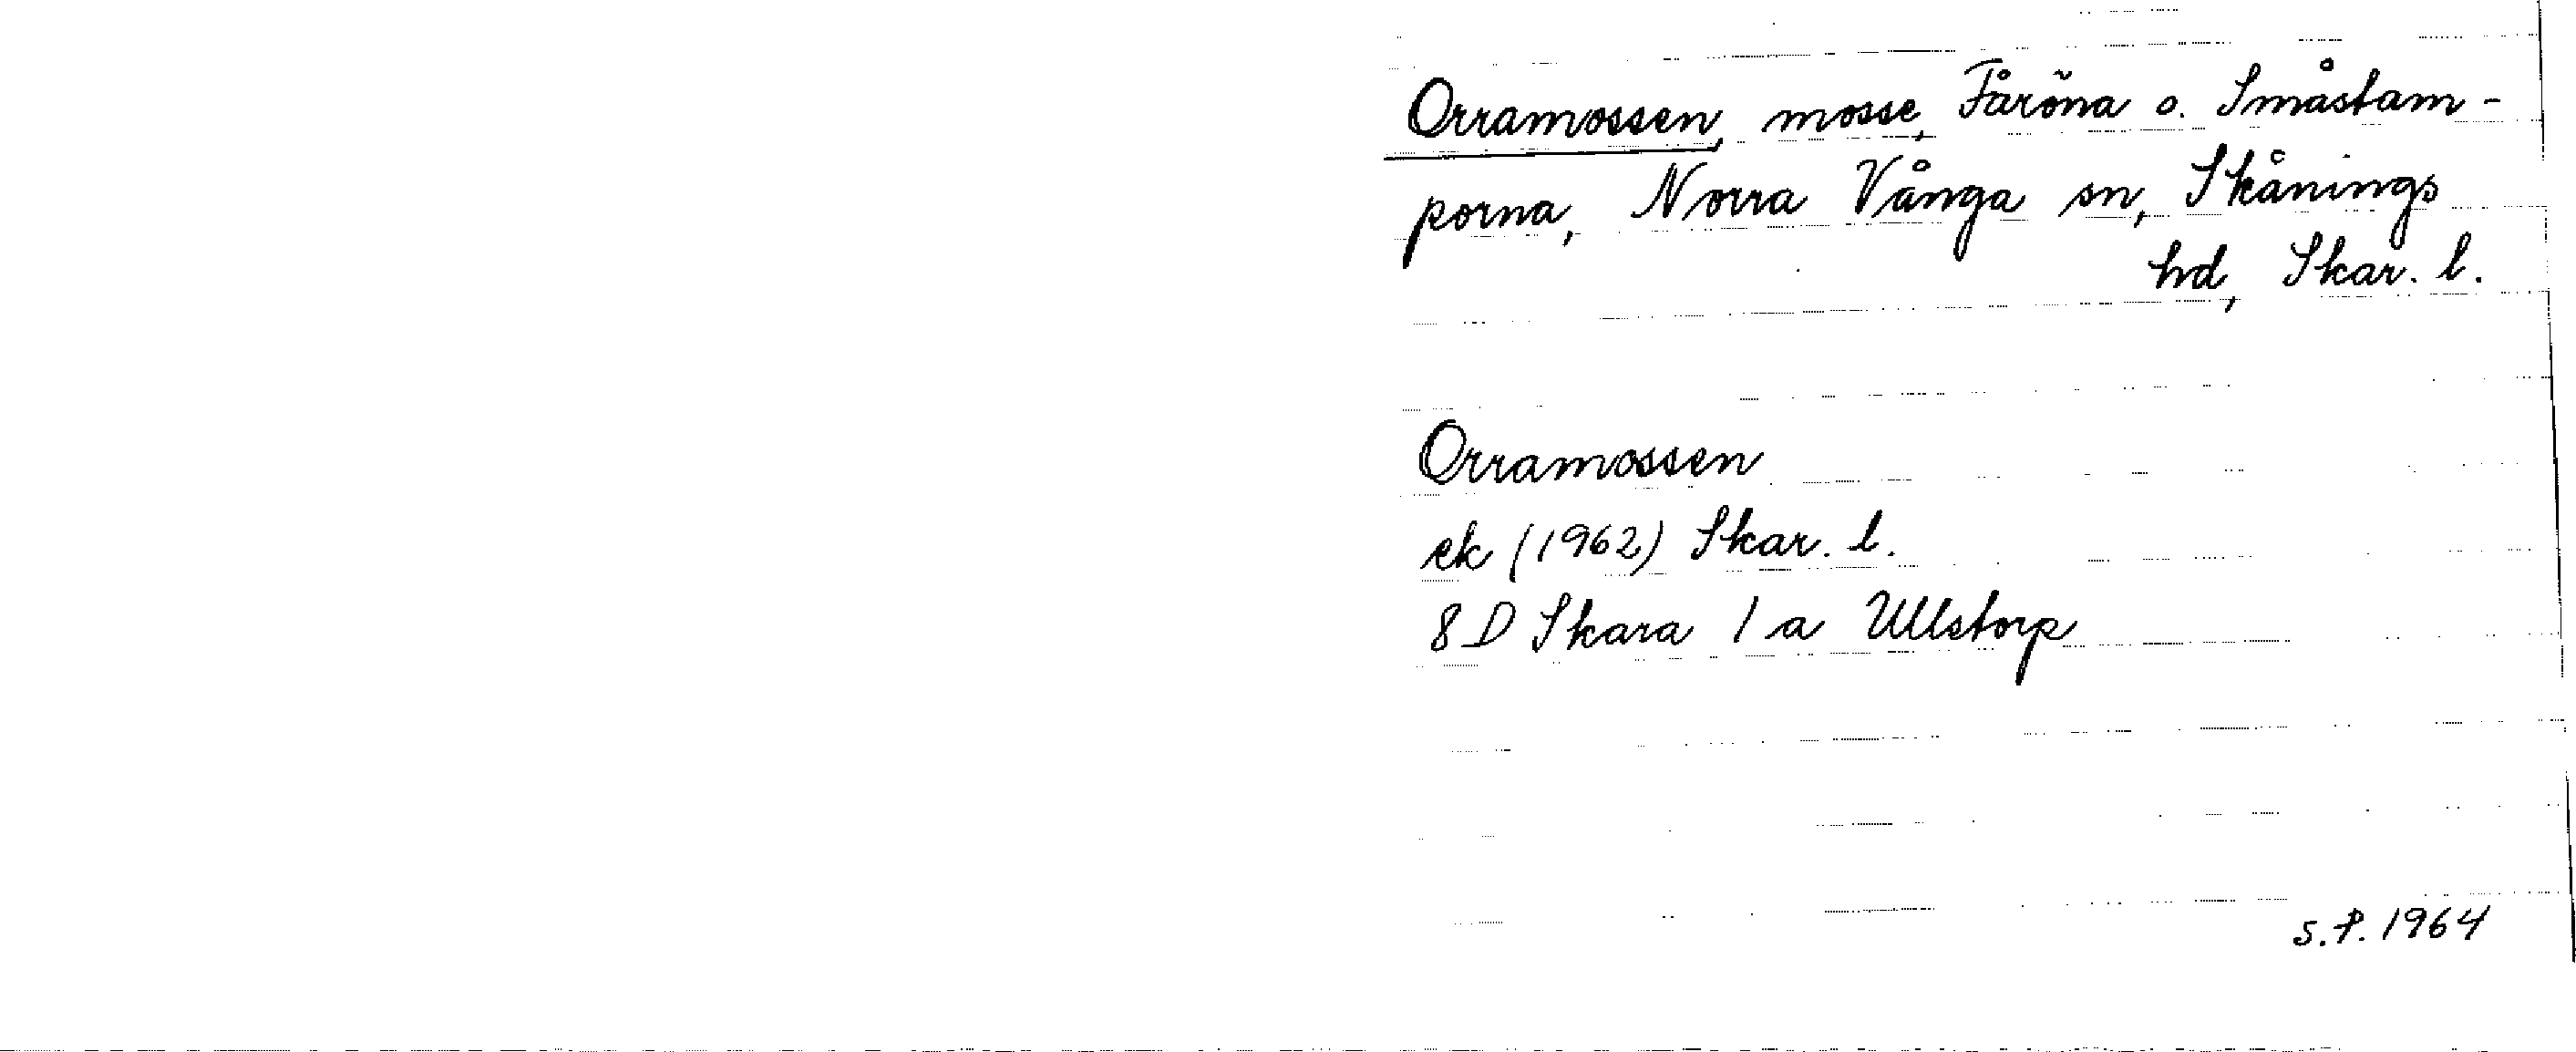 Orramossen, mosse, Fåröna o. Småstam-
porna, Norra Vånga sn, Skånings
hd, Skar. l.
Orramossen
ek (1962) Skar. l.
8 D Skara 1 a Ullstorp
S.P. 1964